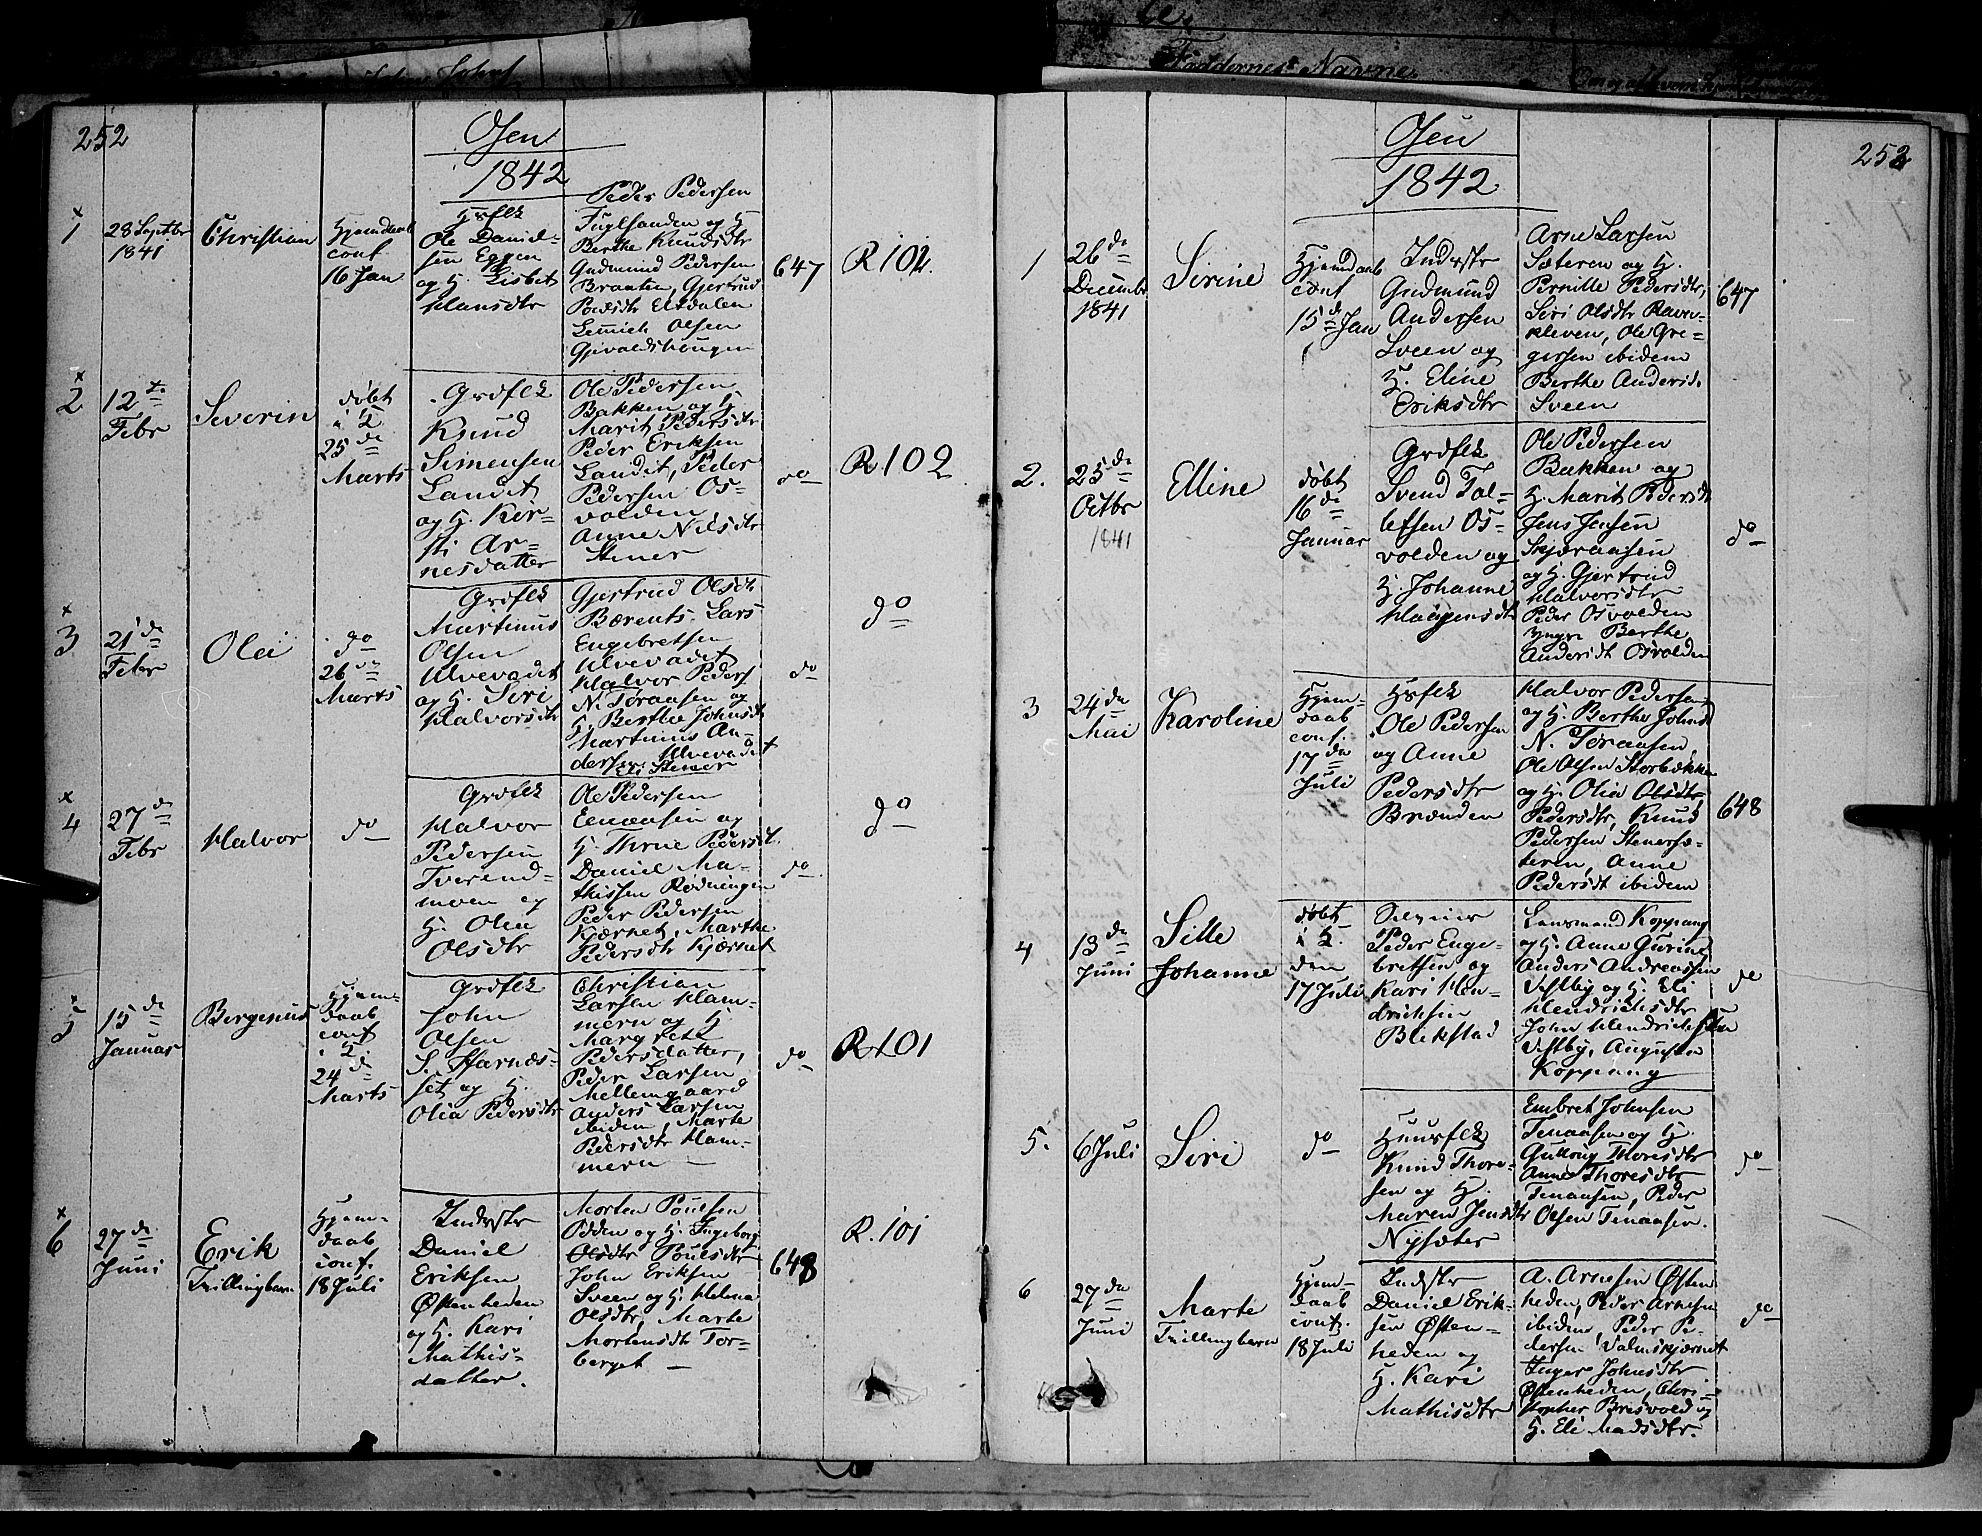 Faddernes Navne
252
Osen
1842
1
28 Septbr
1841
Christian
Hjemdaab
conf
16 Jan
Hsflk
Ole Daniel-
sen Eggen
og H. Lisbet
Hansdtr
Peder Pedersen
Fuglsanden og H
Berthe Knudsdtr
Gudmund Pedersen
Braaten, Gjertrud
Pedsdtr Elvdalen
Olsen
647
R 102.
2
12te
Febr
Severin
døbt
i K
25de
Marts
Grdflk
Knud
Simensen
Landet
og H. Ker-
sti Ar-
nesdatter
Ole Pedersen
Bakken og H
Marit Pedersdtr
Peder Eriksen
Landet, Peder
Pedersen Os-
volden
Anne Nilsdtr
Stener
do
R 102
3
21de
Febr
Olei
do
26de
Marts
Grdflk
Martinus
Olsen
Ulvevadet
og H. Siri
Halvorsdtr
Gjertrud Olsdtr
Bærents. Lars
Engebretsen
Ulvevadet
Halvor Peders
N. Toraasen og
H. Berthe Johnsdtr
Martinus An-
dersen Ulvevadet
Eli Stener
do
do
4
27de
Febr
Halvor
do
Grdflk
Halvor
Pedersen
Tverend-
moen og
H. Olea
Olsdtr
Ole Pedersen
Eenaasen og
H. Thrne Pedersdt.
Daniel Ma-
thissen Rødningen
Peder Pedersen
Kjærnet, Marthe
Pedersdtr Kjærnet
do
do
5
15de
Januar
Bergenus
Hjem-
daab
conf
i K
24de
Marts
Grdflk
John
Olsen
S. Hjarnæs-
set og H.
Olia Pedersdtr
Christian
Larsen Ham-
mern og H
Margrete
Pedersdatter,
Peder Larsen
Mellemgaard
Anders Larsen
ibiden, Marte
Pedersdtr Ham-
mern
do
R 101
6
27de
Juni
Erik
Trillingbarn
Hjem-
daab
conf.
18 Juli
Inderstr
Daniel
Eriksen
Østenheden
og H. Kari
Mathis-
datter.
Morten Poulsen
Odden og H. Ingeborg
Olsdtr Poulsdtr
John Eriksen
Sveen og H. Helena
Olsdtr, Marte
Mortensdt Tor-
berget
648
R. 101
Osen
1842
252
1
26de
Decembr
1841
Sirine
Hjemdaab
conf
15de Jan
Inderstr
Gudmund
Andersen
Sveen og
H. Eline
Eriksdtr
Arne Larsen
Sæteren og H.
Pernille Pedersdtr,
Siri Olsdtr Raven-
kleven, Ole Gre-
gersen ibidem
Berthe Andersd.
Sveen
647
2.
25de
Octbr
1841
Elline
døbt
16de
Januar
Grdflk
Svend Tol-
lefsen Os-
volden og
H. Johanne
Haagensdt
Ole Pedersen
Bakken og
H. Marit Pedersdt
Jens Jensen
Skjæraasen
og H. Gjertrud
Halvorsdtr
Peder Osvolden
Yngre Berthe
Andersdt Osvolden
do
3
24de
Mai
Karoline
Hjem-
daab
conf.
17de
Juli
Hsflk
Ole Pedersen
og Anne
Pedersdtr
Brænden
Halvor Pedersen
og H. Berthe Johnsd
N. Toraasen,
Ole Olsen Storbækken
og H. Olia Olsdtr
Pedersdtr, Knud
Pedersen Stenersæ-
teren, Anne
Pedersdt ibidem
648
4
13de
Juni
Sille
Johanne
døbt
i K.
den
17 Juli
Peder Enge-
bretsen og
Kari Hen-
driksen
Blikstad
Lensmand Koppang
og H. Anne Gurine
Anders Andreassen
Vestby og H. Eli
Hendriksdtr
John Hendricksen
Vestby, Augusta
Koppang
do
5.
6 Juli
Siri
do
Huusflk
Knud Thore-
sen og H.
Maren Jensdtr
Nysæter
Embret Johnsen
Tenaasen og H.
Guttorg Thoresdtr
Anne Thoresdtr
Tenaasen, Peder
Olsen Tenaasen.
do
6
27de
Juni
Marte
Trillingbarn
Hjem-
daab
conf.
18 Juli
Indstr
Daniel Erik-
sen Østen-
heden og
H. Kari
Mathisdtr
A. Arnesen Østen
heden, Peder Arnesen
ibidem, Peder Pe-
dersen Valmskjærnet
Inger Johnsdtr
Østenheden, Chri-
stopher Bresvold og
H. Eli Madsdtr.
do